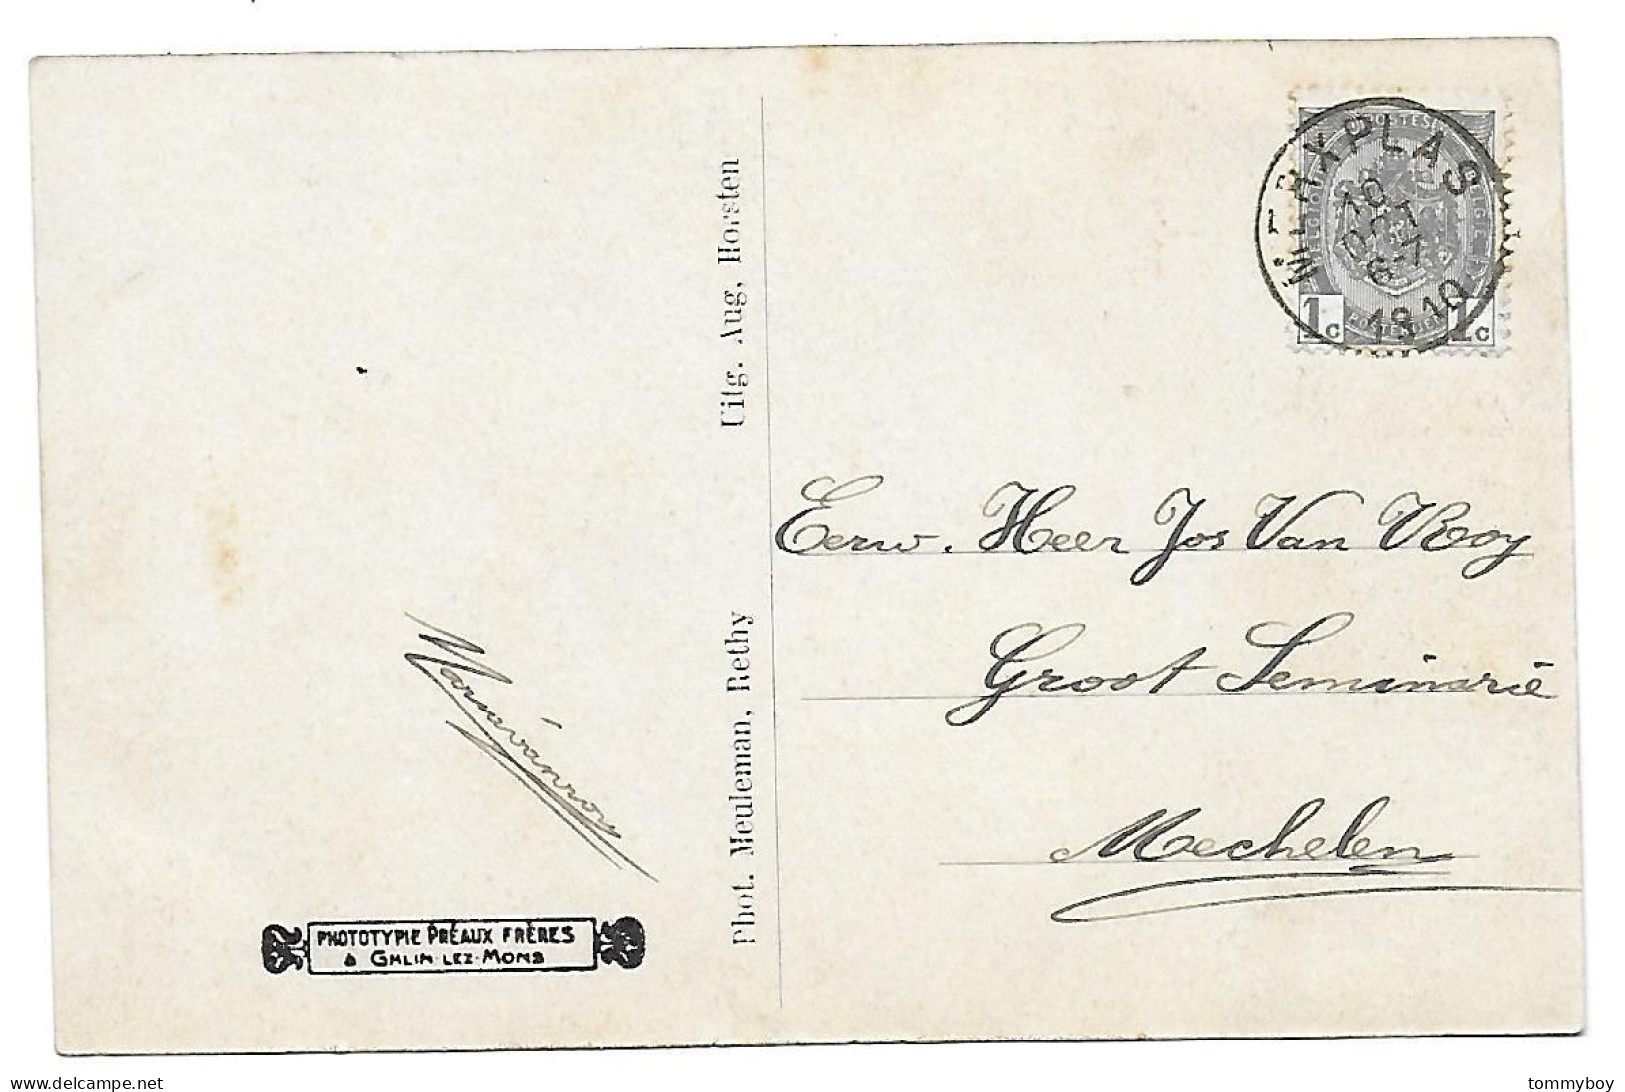 MERXPLAS
10
OCT
6-7
1910
POSTES
1c 1c
Uitg. Aug, Horsten
Phot. Meuleman, Rethy
Eerw. Heer Jos Van Rooy
Groot Seminarie
Mechelen
Maria van roy
PHOTOTYPIE PRÉAUX FRÈRES
à GHLIN-LEZ-MONS
delcampe.net
tommyboy